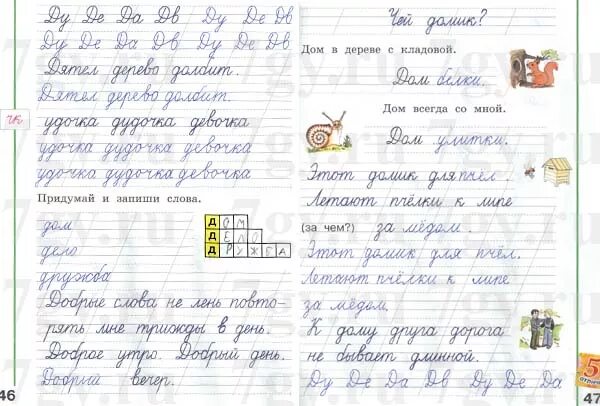 Ду Де Да Дв Ду Де Дв
Ду Де Да Дв Ду Де Дв
Дятел дерево долбит.
Дятел дерево долбит.
чк
удочка дудочка девочка
удочка дудочка девочка
удочка дудочка девочка
Придумай и запиши слова.
дом
дело
дружба
ДОМ
ДЕЛО
ДРУЖБА
Добрые слова не лень повто-
рять мне трижды в день.
Доброе утро. Добрый день.
Добрый вечер.
46
Чей домик?
Дом в дереве с кладовой.
Дом белки.
Дом всегда со мной.
Дом улитки.
Этот домик для пчёл.
Летают пчёлки к липе
(за чем?) за мёдом.
Этот домик для пчёл.
Летают пчёлки к липе
за мёдом.
К дому друга дорога
не бывает длинной.
Ду Де Да Дв Ду Де Да
5
отлично
47
7gy.ru